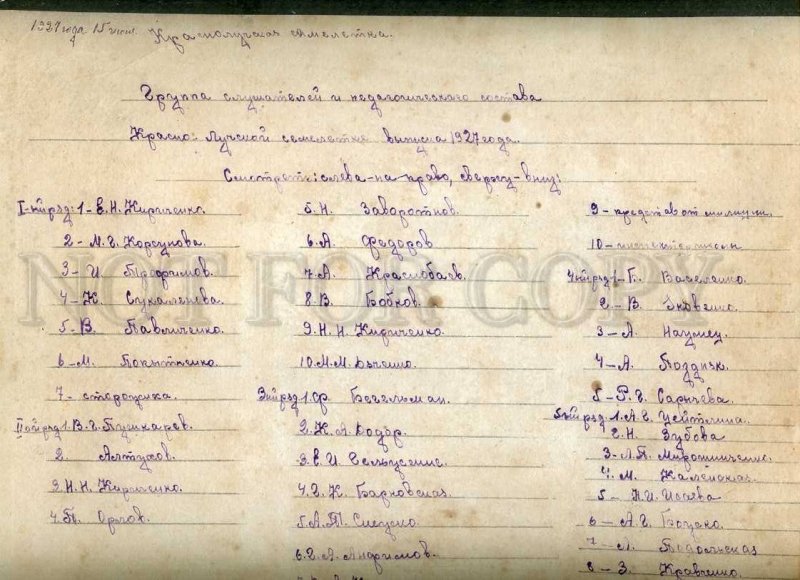 1927 года 15 июн. Краснолучская семилетка.
Группа слушателей и педагогического состава
Красно: Лучской семилетке выпуска 1927 года.
Смотреть: слева-на-право, сверху-вниз:
I-ый ряд: 1-Е.Н. Кириченко.
2-М.Г. Корсунова.
3-И. Трофимов.
4-К. Сукаленева.
5-В. Павличенко.
6-М. Покатченко.
7-сторожиха.
II ой ряд 1. В.Г. Пушкарев.
2. Алтухов.
3. Н.Н. Кириченко.
4. П. Орлов.
5. Н. Заворотнов.
6. А. Федоров
7. А. Краснобаев.
8. В. Бобков.
9. Н.Н. Кириченко.
10. М.М. Дяченко.
3ий ряд 1. Ф. Бегельман.
2. К.А. Бодэр.
3. Е.И.
4. Г.К. Барковская.
5. А.Т.
6. Г.А. Анфимов.
9-представ от милиции,
10-
4 ый ряд 1-Г. Василенко.
2-В. Яковенко.
3-А. Наумец.
4-А. Поздняк.
5-Р.Г. Сарычева.
5ый ряд. 1. А.Е. Цейтлина.
2. Н. Зубова
3-Л.П. Мирошниченко.
4. М. Каменская.
5-Н.И. Исаева
6-А.Г. Гоценко.
7-Л. Подольская
8-З. Кравченко.
NOT FOR COPY